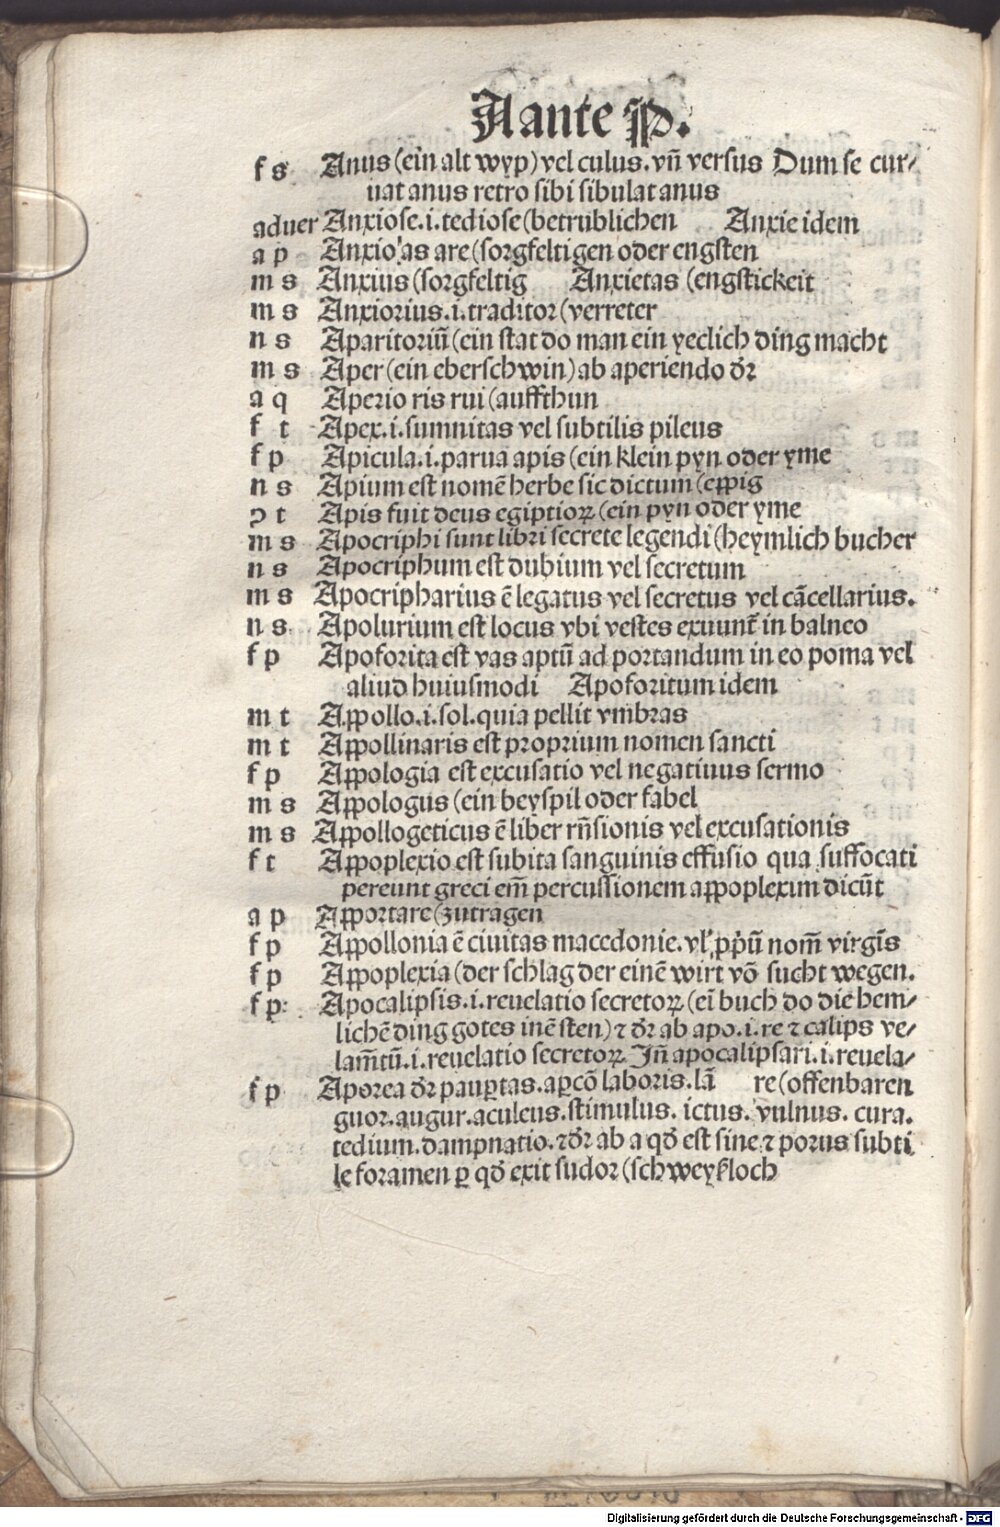 A ante P.
f s Anus (ein alt wyp) vel culus. vñ versus Dum se cur⸗
uat anus retro sibi sibulat anus
aduer Anxiose .i. tediose (betrublichen Anxie idem
a p Anxio as are (sorgfeltigen oder engsten
m s Anxius (sorgfeltig Anxietas (engstickeit
m s Anxiorius .i. traditor (verreter
n s Aparitoriū (ein stat do man ein yeclich ding macht
m s Aper (ein eberschwin) ab aperiendo dr̄
a q Aperio ris rui (auffthun
f t Apex .i. sumnitas vel subtilis pileus
f p Apicula .i. parua apis (ein klein pyn oder yme
n s Apium est nomē herbe sic dictum (eppig
ↄ t Apis fuit deus egiptioꝝ (ein pyn oder yme
m s Apocriphi sunt libri secrete legendi (heymlich bucher
n s Apocriphum est dubium vel secretum
m s Apocripharius ē legatus vel secretus vel cācellarius.
n s Apolurium est locus vbi vestes exuunt̄ in balneo
f p Apoforita est vas aptū ad portandum in eo poma vel
aliud huiusmodi Apoforitum idem
m t Appollo .i. sol. quia pellit vmbras
m t Appollinaris est proprium nomen sancti
f p Appologia est excusatio vel negatiuus sermo
m s Appologus (ein beyspil oder fabel
m s Appollogeticus ē liber rn̄sionis vel excusationis
f t Appoplexio est subita sanguinis effusio qua suffocati
pereunt greci em̄ percussionem appoplexim dicūt
a p Apportare (zutragen
f p Appollonia ē ciuitas macedonie. vl̓ ꝓpriū nom̄ virgīs
f p Appoplexia (der schlag der einē wirt vō sucht wegen.
f p Apocalipsis .i. reuelatio secretoꝝ (eī buch do die hem⸗
lichē ding gotes inē sten) ⁊ dr̄ ab apo .i. re ⁊ calips ve⸗
lam̄tū .i. reuelatio secretoꝝ Jn̄ apocalipsari .i. reuela⸗
f p Aporea dr̄ paup̱tas. ap̱cō laboris. lā re (offenbaren
guor. augur. aculeus. stimulus. ictus. vulnus. cura.
tedium. dampnatio. ⁊ dr̄ ab a qd̄ est sine ⁊ porus subti
le foramen ꝑ qd̄ exit sudor (schweyßloch
Digitalisierung gefördert durch die Deutsche Forschungsgemeinschaft - DFG